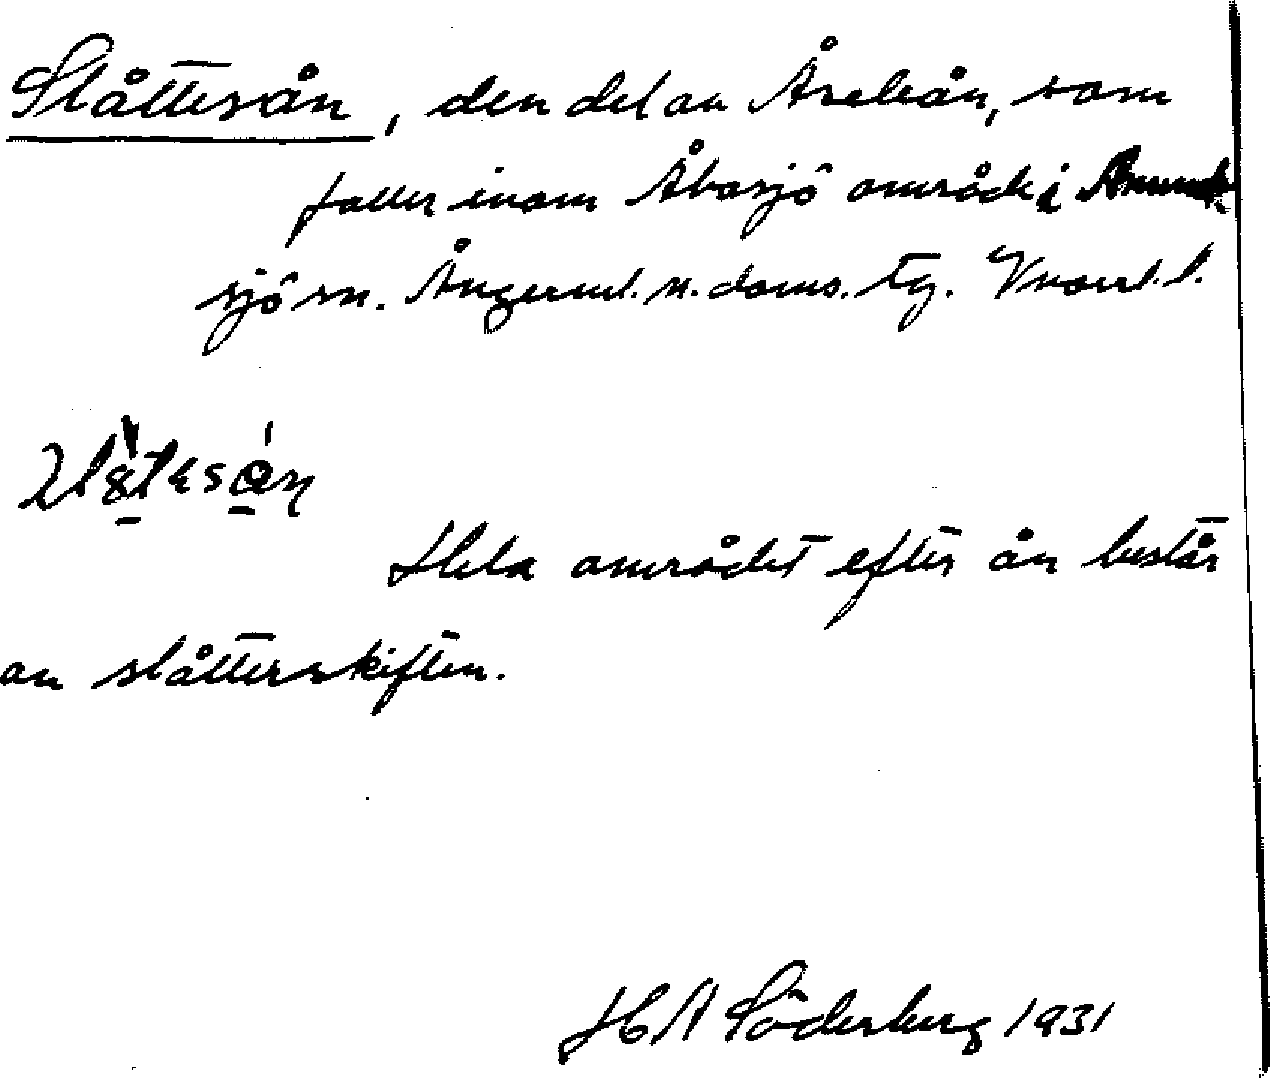 Slåttesån, den del av Åseleån, som
faller inom Åbosjö område i Anund-
sjö sn. Ångerml. n. doms. tg. Vnorrl. l.
Hela området efter ån består
av slåtterskiften.
H A Söderberg 1931